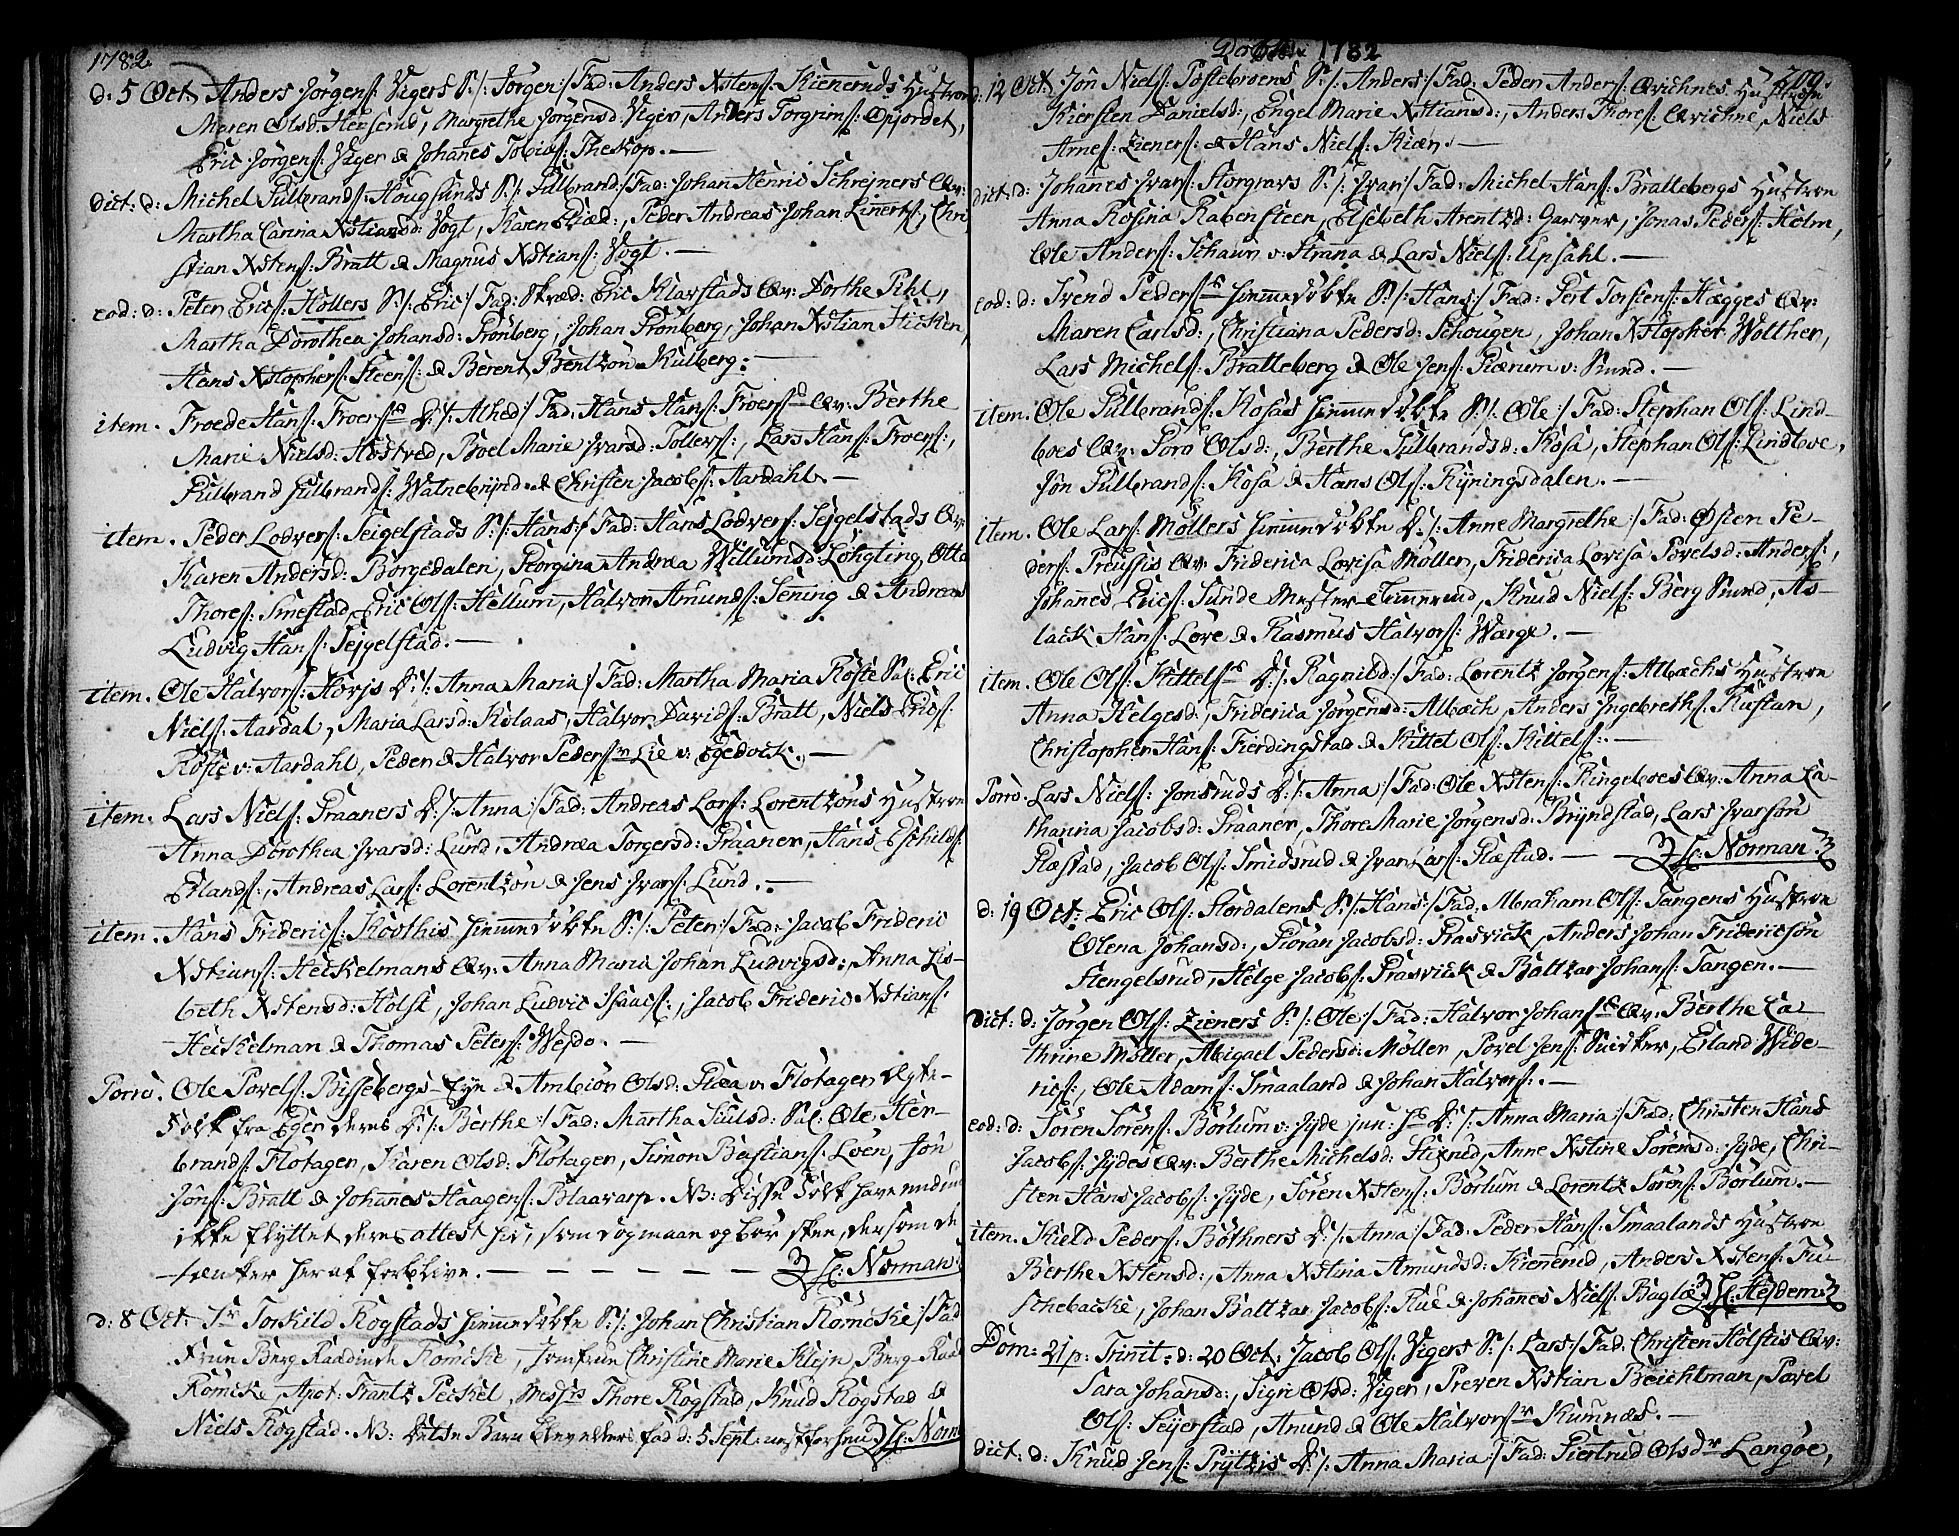 1782.
d: 5 Oct: Anders Jörgens: Vigers S:/: Jörgen:/ Fad: Anders Xstens: Kieneruds Hustroe
Maren Olsd: Hersend, Margrethe Jörgensd: Viger, Anders Torgrims: Opjordet,
Eric Jörgens: Viger & Johanes Tobias: Theskop. —
dict: d: Michel Gulbrands: Hougsunds S:/: Gulbrand:/ Fad: Johan Henric Schrejners Qv:
Martha Carina Xstiansd: Vogt, Karen Evæd:, Peder Andreas Johan Linerts:, Chri
stian Xstens: Bratt & Magnus Xstians: Vogt. —
eod: d: Peter Erics: Hollers S:/: Eric:/ Fad: Skræd: Eric Klavstads Qv: Dorthe Pihl,
Martha Dorothea Johansd: Grönberg, Johan Grönberg, Johan Xstian Hicken,
Hans Xstophers: Steens: & Berent Bentzon Kulberg. —
item. Froede Hans: Froers: D:/: Alhed:/ Fad: Hans Hans: Froers: Qv: Berthe
Marie Nielsd: Hostved, Boel Marie Ivarsd: Tollers:, Lars Hans: Froers:,
Gulbrand Gulbrands: Watnebrynd & Christen Jacobs: Aardahl. —
item. Peder Lodvers: Seigelstads S:/: Hans:/ Fad: Hans Lodvers: Sejgelstads Qv:
Karen Andersd: Borgedalen, Georgina Andrea Willumsd: Löngting, Otte
Thores: Smestad, Eric Ols: Hellum, Halvor Amunds: Sening & Andreas
Ludvig Hans: Sejgelstad. —
item. Ole Halvors: Horjs D:/: Anna Maria:/ Fad: Martha Maria Röste Sal: Eric
Niels: Aardal, Maria Larsd: Kolaas, Halvor Davids: Bratt, Niels Erics:
Röste v: Aardahl, Peder & Halvor Peders: Lie v: Egedvek. —
item. Lars Niels: Graaners D:/: Anna:/ Fad: Andreas Lars: Lorentzons Hustroe
Anna Dorothea Ivarsd: Lund, Andræa Torgersd: Graaner, Hans Eschilds:
Erlands:, Andreas Lars: Lorentzon & Jens Ivars: Lund. —
item. Hans Frideric: Koothis hiemmedöbte S:/: Peter:/ Fad: Jacob Frideric
Xstians: Heckelmans Qv: Anna Maria Johan Ludvigsd:, Anna Lis-
beth Xstensd: Holst, Johan Ludvic Isaacs:, Jacob Frideric Xstians:
Heckelman & Thomas Peters: Wejdo. —
Porro. Ole Povels: Bissebergs Eye & Ambiör Olsd: Giæa v: Flotagen Egte-
Folk fra Eger deres D:/: Berthe:/ Fad: Martha Juulsd: Sal: Ole Her-
brands: Flotagen, Karen Olsd: Flotagen, Simon Bastians: Loen, Jon
Jöns: Bratt & Johanes Haagens: Blaavarp. NB: Disse Folk have endnu
ikke flyttet deres attest hid, som dog maae og bör skee, dersom de
tænker her at forblive. — — — — — — H: Norman
d: 8 Oct: Sr Torkild Rogstads hiemmedöbte S:/: Johan Christian Römcke:/ Fad
Frue Berg Raadinde Römcke, Jomfrue Christine Marie Klejn, Berg-Raa
Römcke, Apot: Frantz Peckel, Messrs Thore Rogstad, Knud Rogstad &
Niels Rogstad. NB: Dette Barn blev döbt d: 5 Sept: nestforhen H: Norm
Dobte 1782
200.
d: 12 Oct: Jön Niels: Gostebroens S:/: Anders:/ Fad: Peder Anders: Qvichnes Hustroe
Kiersten Danielsd:, Engel Marie Xstiansd:, Anders Thores: Qvichne, Niels
Arnes: Zieners: & Hans Niels: Kiæn. —
dict: d: Johanes Ivars: Storgravs S:/: Ivar:/ Fad: Michel Hans: Brattebergs Hustroe
Anna Rosina Rabensteen, Elsebeth Arentzd: Garver, Jonas Peders: Helm,
Ole Anders: Schaun v: Strana & Lars Niels: Upsahl. —
eod: d: Svend Peders: hiemmedöbte S:/: Hans:/ Fad: Gert Torstens: Hægges Qv:
Maren Carlsd:, Christiana Pedersd: Schougen, Johan Xstopher Wolther,
Lars Michels: Bratteberg & Ole Jens: Giærum v: Sund. —
item. Ole Gulbrands: Kosas hiemmedöbte S:/: Ole:/ Fad: Stephan Ols: Lind-
boes Qv: Goro Olsd:, Berthe Gulbrandsd: Kosa, Stephan Ols: Lindboe,
Jön Gulbrands: Kosa & Hans Ols: Ryningsdalen. —
item. Ole Lars: Möllers hiemmedöbte D:/: Anne Margrethe:/ Fad: Östen Pe-
ders: Preussis Qv: Friderica Lovisa Möller, Friderica Lovisa Povelsd: Anders:,
Johanes Erics: Sunde Mester Temmerud, Knud Niels: Berg Sund, As-
lack Hans: Löve & Rasmus Halvors: Wærge. —
item. Ole Ols: Kittels: D:/: Ragnild:/ Fad: Lorentz Jörgens: Albachs Hustroe
Anna Helgesd:, Friderica Jörgensd: Albach, Anders Ingebreths: Rustan,
Christopher Hans: Fierdingstad & Kittel Ols: Kittels: —
Porro. Lars Niels: Jonsruds D:/: Anna:/ Fad: Ole Xstens: Ringeboes Qv: Anna Ca-
tharina Jacobsd: Graaner, Thore Marie Jörgensd: Bryndstad, Lars Ivarson
Glæstad, Jacob Ols: Smidsrud & Ivar Lars: Glæstad. — H: Norman
d: 19 Oct: Eric Ols: Stordalens S:/: Hans:/ Fad: Abraham Ols: Tangens Hustroe
Olena Johansd:, Giöran Jacobsd: Grasvick, Anders Johan Fridericson
Stengelsrud, Helge Jacobs: Grasvick & Baltzar Johans: Tangen. —
dict: d: Jörgen Ols: Zieners S:/: Ole:/ Fad: Halvor Johans: Qv: Berthe Ca-
thrine Möller, Abigael Pedersd: Möller, Povel Jens: Snicker, Erland Wide-
rics:, Ole Adams: Smaaland & Johan Halvors: —
eod: d: Sören Sörens: Börlum v: Jyde jun: D:/: Anna Maria:/ Fad: Christen Hans
Jacobs: Jydes Qv: Berthe Michelsd: Stixrud, Anne Xstine Sörensd: Jyde, Chri-
sten Hans Jacobs: Jyde, Sören Xstens: Börlum & Lorentz Sörens: Börlum. —
item. Kield Peders: Böthners D:/: Anna:/ Fad: Peder Hans: Smaalands Hustroe
Berthe Xstensd:, Anna Xstina Amundsd: Kienerud, Anders Xstens: Fu-
schebacke, Johan Baltzar Jacobs: Rue & Johanes Niels: Baglie H: Hesdem
Dom: 21 p: Trinit: d: 20 Oct: Jacob Ols: Vigers S:/: Lars:/ Fad: Christen Holstis Qv:
Sara Johansd:, Sigri Olsd: Viger, Greven Xstian Beichtman, Povel
Ols: Sejerstad, Amund & Ole Halvors: Kumnes. —
dict: d: Knud Jens: Prytzis D:/: Anna Maria:/ Fad: Giertrud Olsdr Langøe,